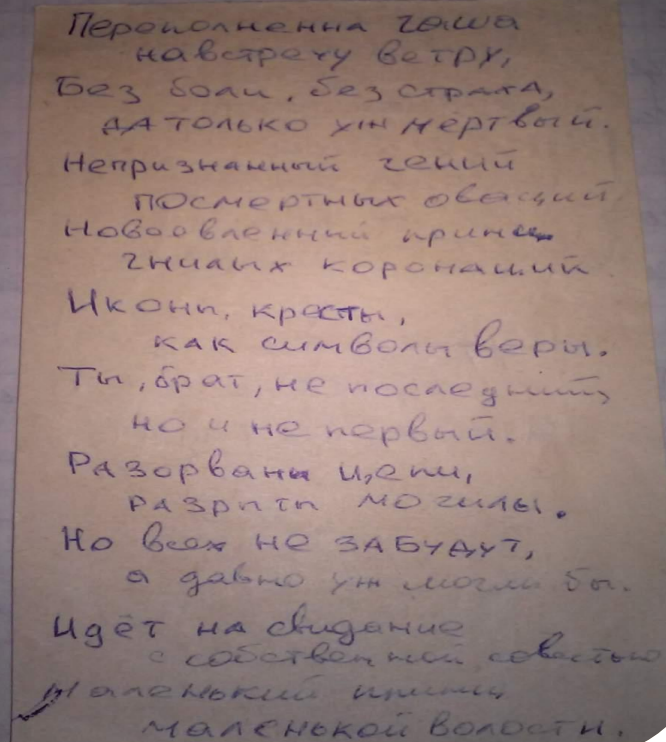 Переполненна чаша
навстречу ветру,
Без боли, без страха,
да только уж мёртвый.
Непризнанный гений
посмертных оваций
Новоявленный принц
гнилых коронаций
Иконы, кресты,
как символы веры.
Ты, брат, не последний,
но и не первый.
Разорваны цепи,
разрыты могилы.
Но всех не забудут,
а давно уж могли бы.
Идёт на свидание
с собственной совестью
Маленький принц
маленькой волости.